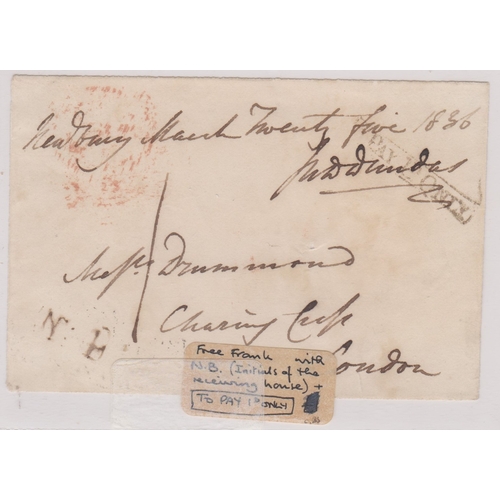 Newbury March Twenty five 1836
Dundas
Messrs Drummond
1
Charing Cross
London
N. B
Free Frank with
N.B. (Initials of the
receiving house) +
TO PAY 1D ONLY